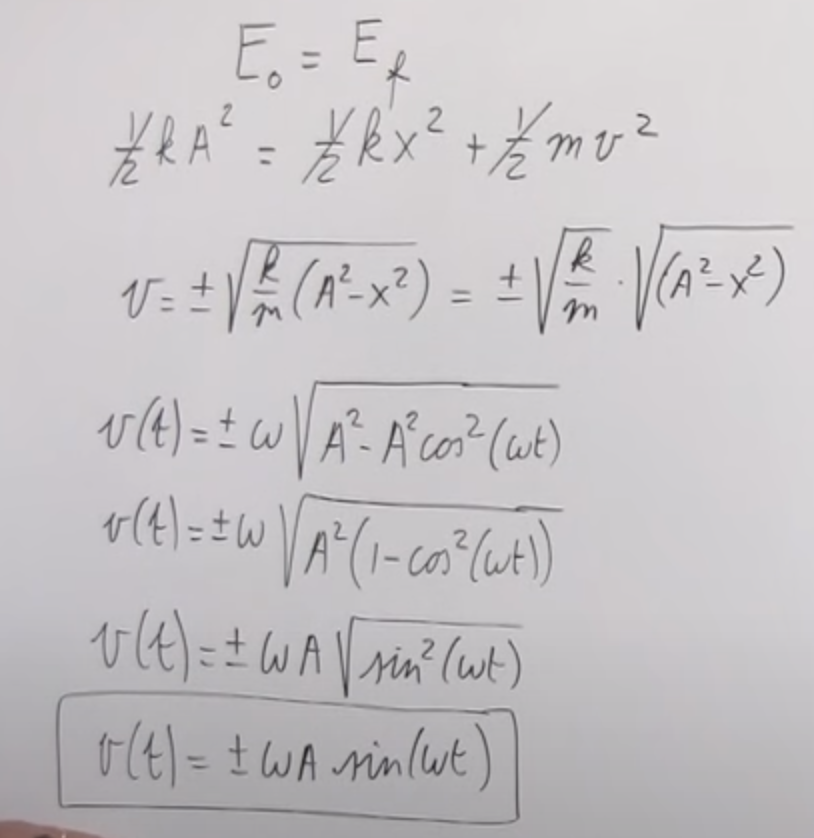 E₀ = E_f
½kA² = ½kx² + ½mv²
v = ±√(k/m (A²-x²)) = ±√(k/m) · √((A²-x²))
v(t) = ±ω√(A²-A²cos²(ωt))
v(t) = ±ω√(A²(1-cos²(ωt)))
v(t) = ±ωA√(sin²(ωt))
v(t) = ±ωA sin(ωt)